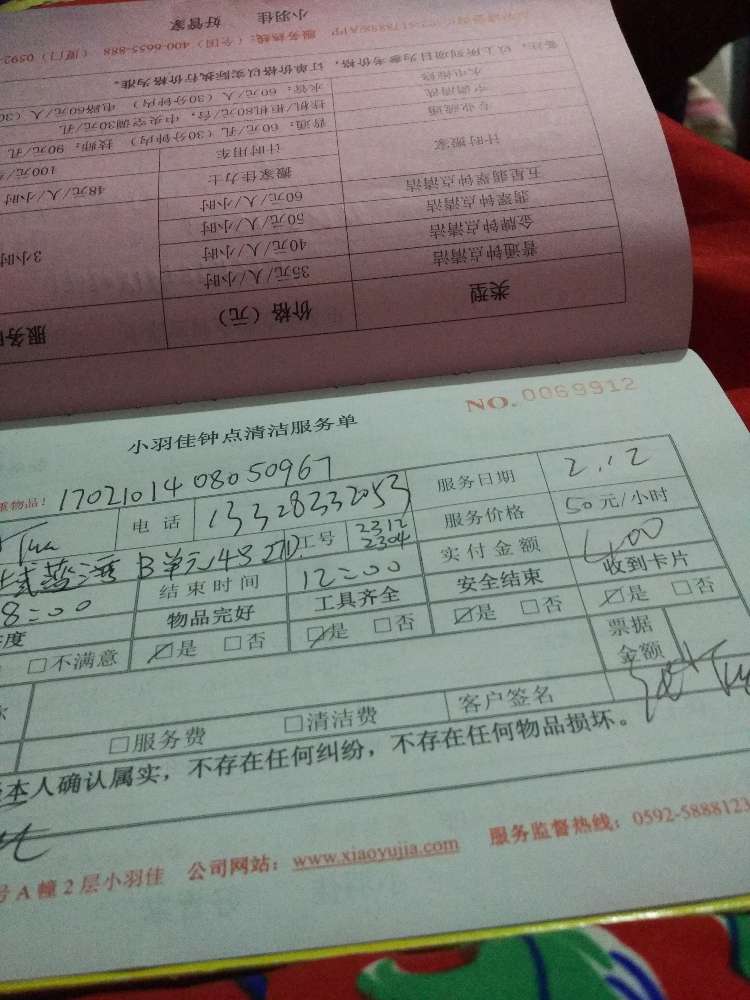 小羽佳 好管家
服务热线：（全国）400-6655-888 （厦门）0592-
备注：以上所列项目为参考价格，订单价格以实际执行价格为准。
水电维修 水管：60元/人（30分钟内） 电路60元/人（30
空调清洗 挂机/柜机80元/台，中央空调30元/孔
专业疏通 普通：60元/孔（30分钟内） 技师：90元/孔
计时搬家 计时用车 100元/
搬家佳力士 48元/人/小时
五星翡翠钟点清洁 60元/人/小时
翡翠钟点清洁 50元/人/小时
金牌钟点清洁 40元/人/小时 3小时
普通钟点清洁 35元/人/小时
类型 价格（元） 服务
NO.0069912
小羽佳钟点清洁服务单
重物品！ 1702101408050967
电话 13328332053 服务日期 2.12
B单元4号 工号 2312 2304 服务价格 50元/小时
8:00 结束时间 12:00 实付金额 400
度 物品完好 工具齐全 安全结束 收到卡片
□不满意 ☑是 □否 ☑是 □否 ☑是 □否 ☑是 □否
票据金额
□服务费 □清洁费 客户签名
本人确认属实，不存在任何纠纷，不存在任何物品损坏。
号A幢2层小羽佳 公司网站：www.xiaoyujia.com 服务监督热线：0592-5888123